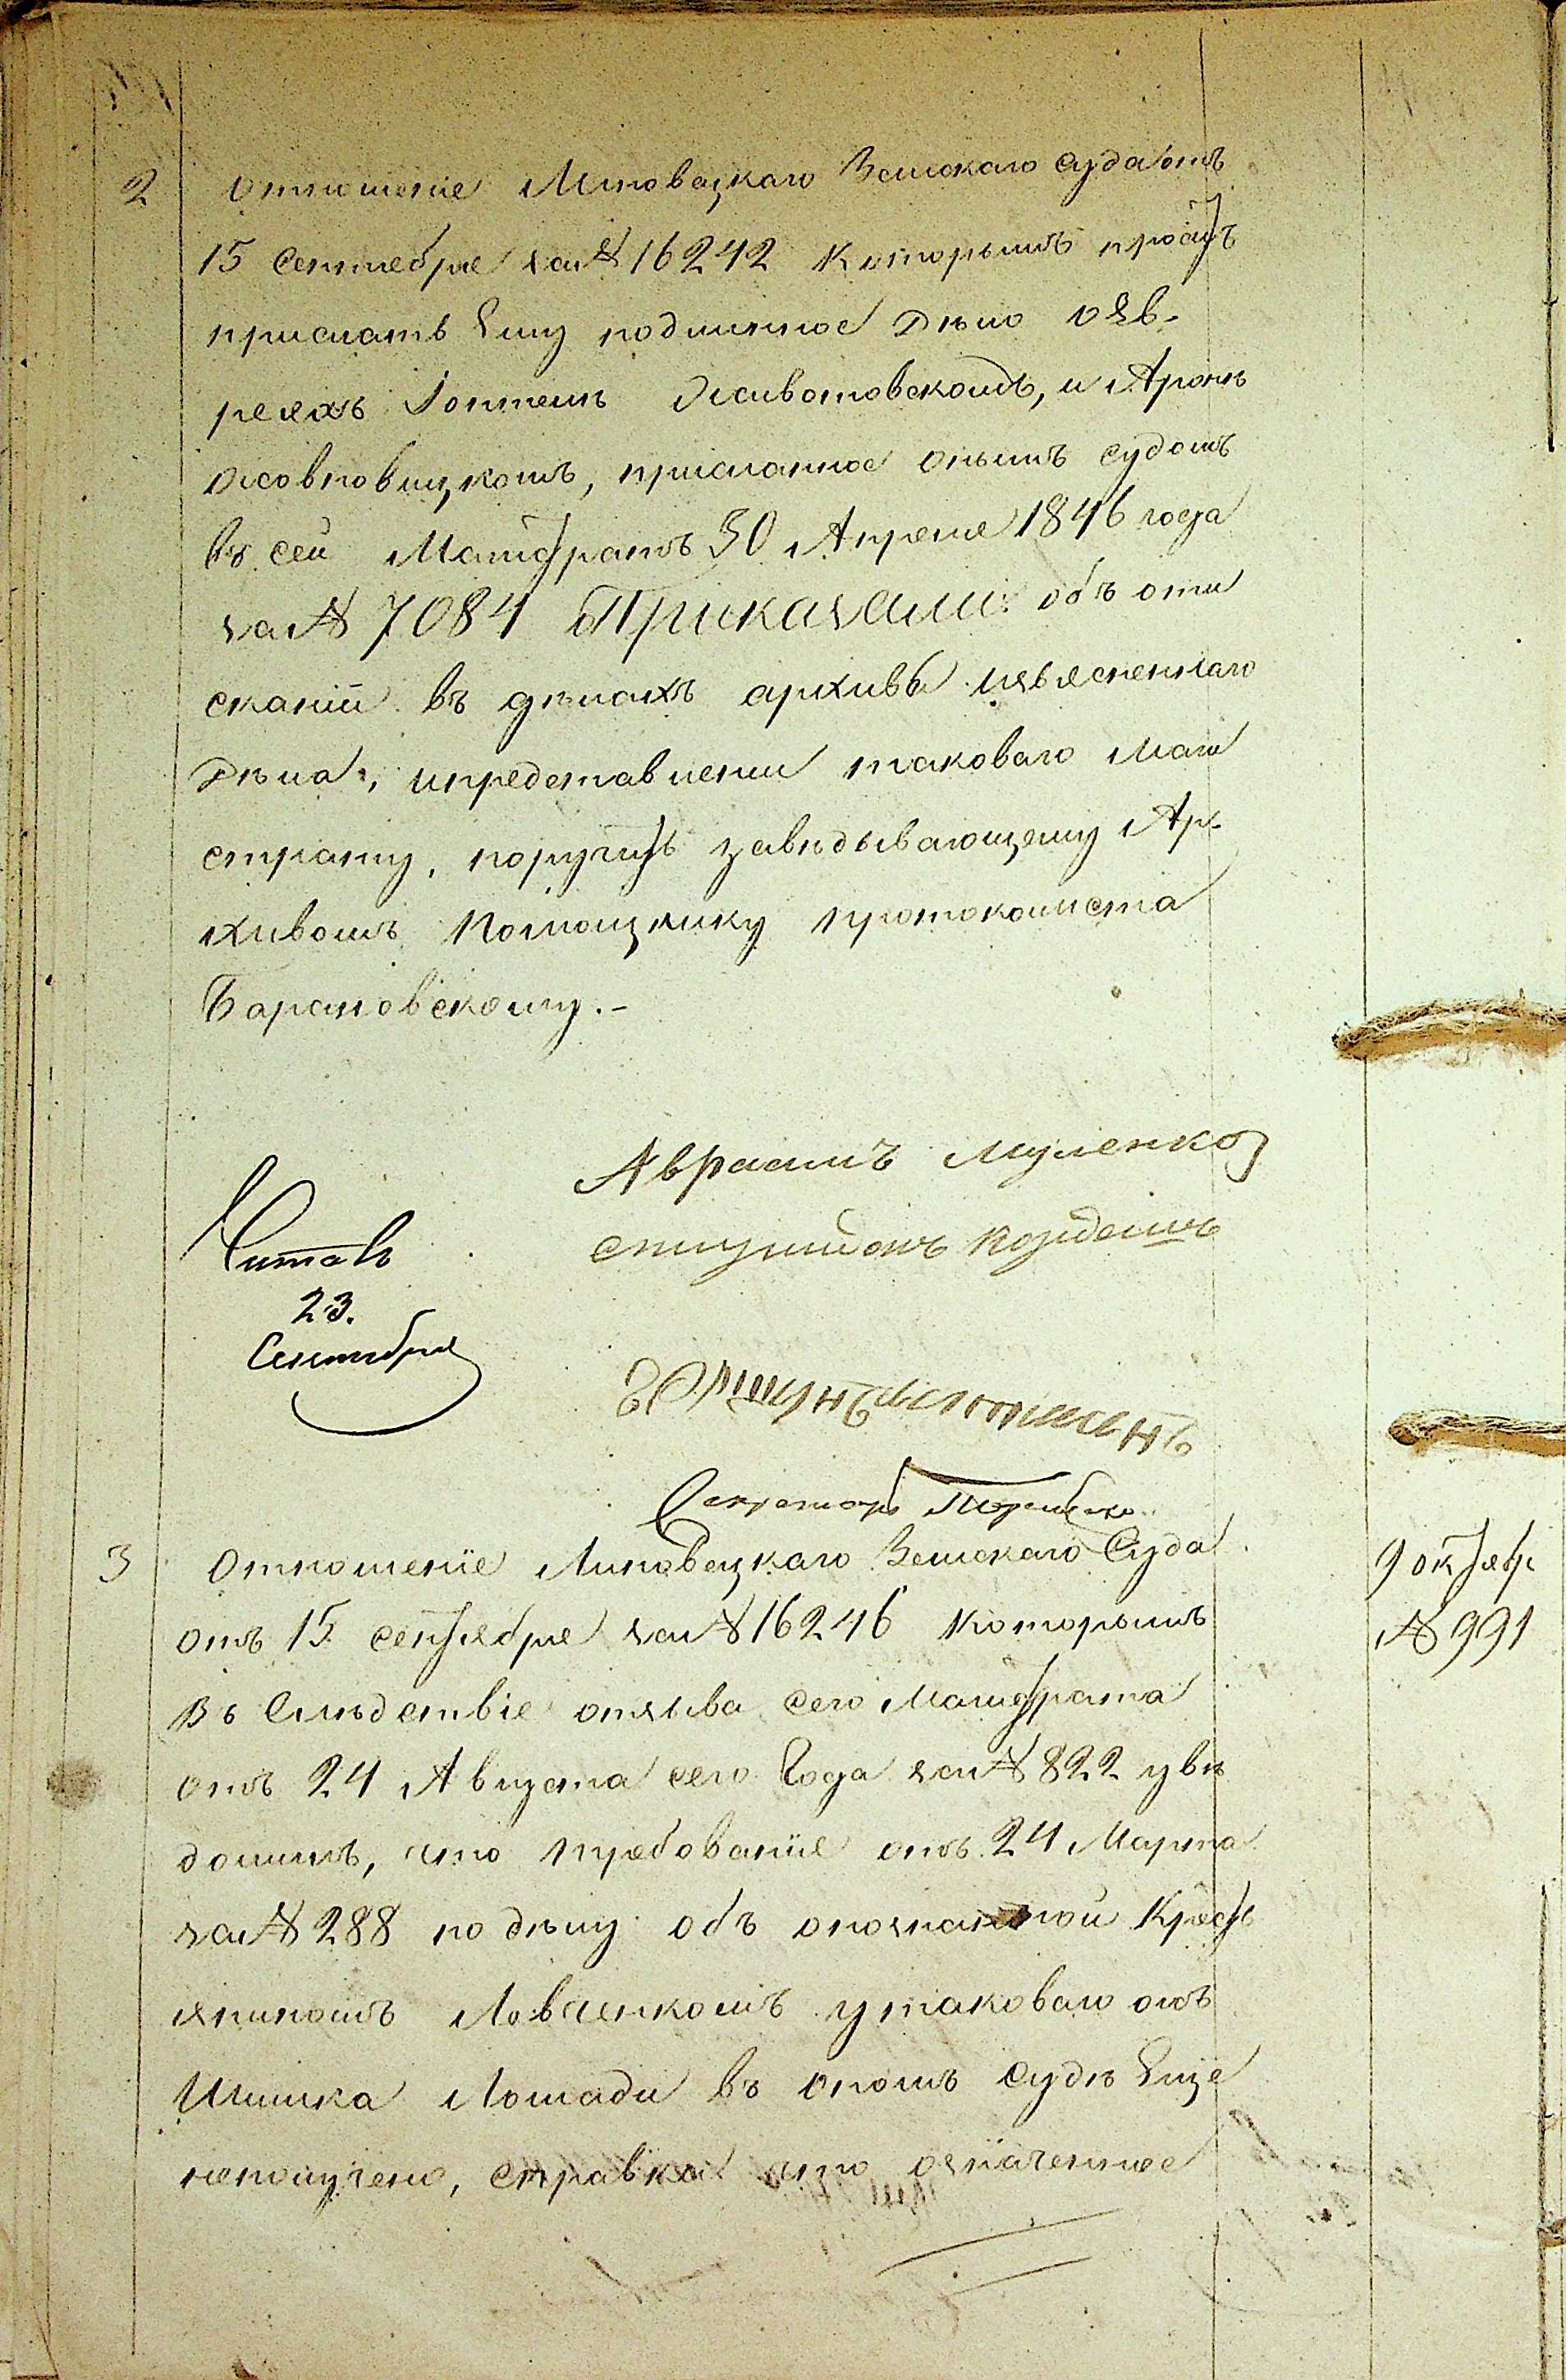 2
Отношеніе Липовецкаго Земскаго Суда отъ
15 Сентебре за № 16242 Которымъ проситъ
прислать Ему подлинное Дѣло о Ев-
реяхъ Іоптель Животовскомъ, и Аронѣ
Жовновицкомъ, присланное онымъ Судомъ
въ сей Магистратъ 30 Апреле 1846 года
за № 7084 Приказали: объ оты
сканіи въ дѣлахъ архивы изъясненнаго
Дѣла, ипредставлении таковаго Маги
страту, поручить завѣдывающему Ар-
хивомъ Помощнику протоколиста
Барановскому.-
Авраамъ
Читалъ
23.
Сентября
Секретарь
3
Отношеніе Липовецкаго Земскаго Суда
отъ 15 сентебре за № 16246 Которымъ
Въ Слѣдствіе отзыва сего Магистрата
отъ 24 Августа сего Года за № 822 увѣ
домилъ, что требованіе отъ 24 Марта
за № 288 по дѣлу объ опознанной Крестъ
яниномъ Левченкомъ у таковаго отъ
Шишка Лошади въ ономъ Судѣ Еще
неполучено, справка что означенное
9 октебр
№ 991